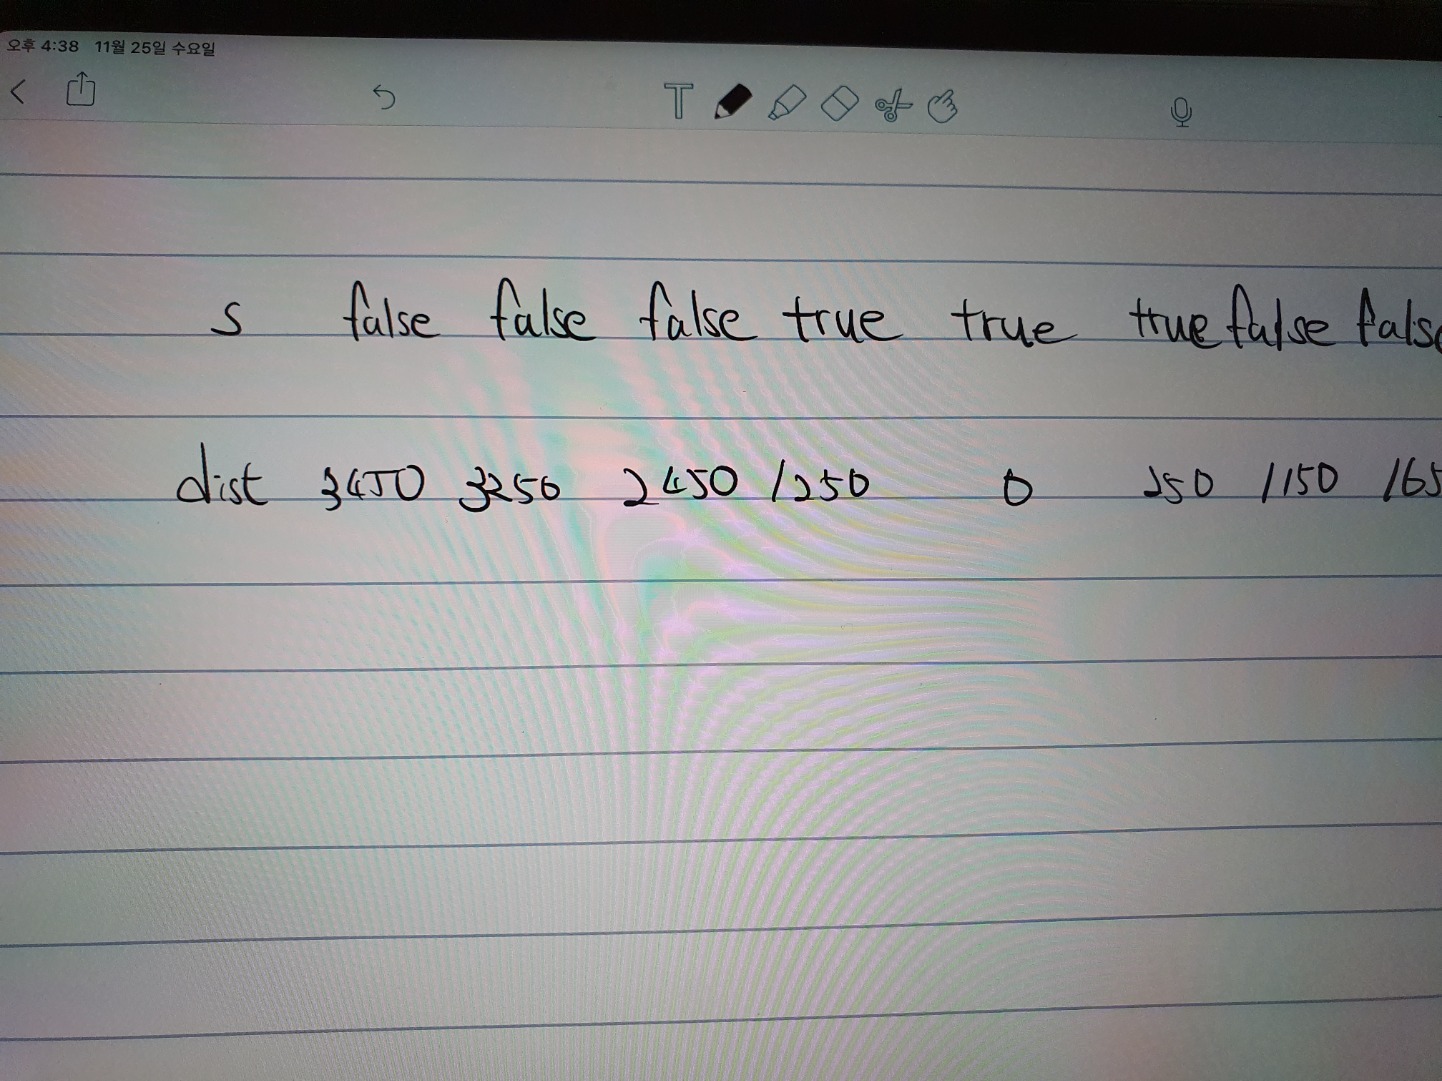 오후 4:38 11월 25일 수요일
T
s false false false true true true false false
dist 3450 3250 2450 1250 0 250 1150 165